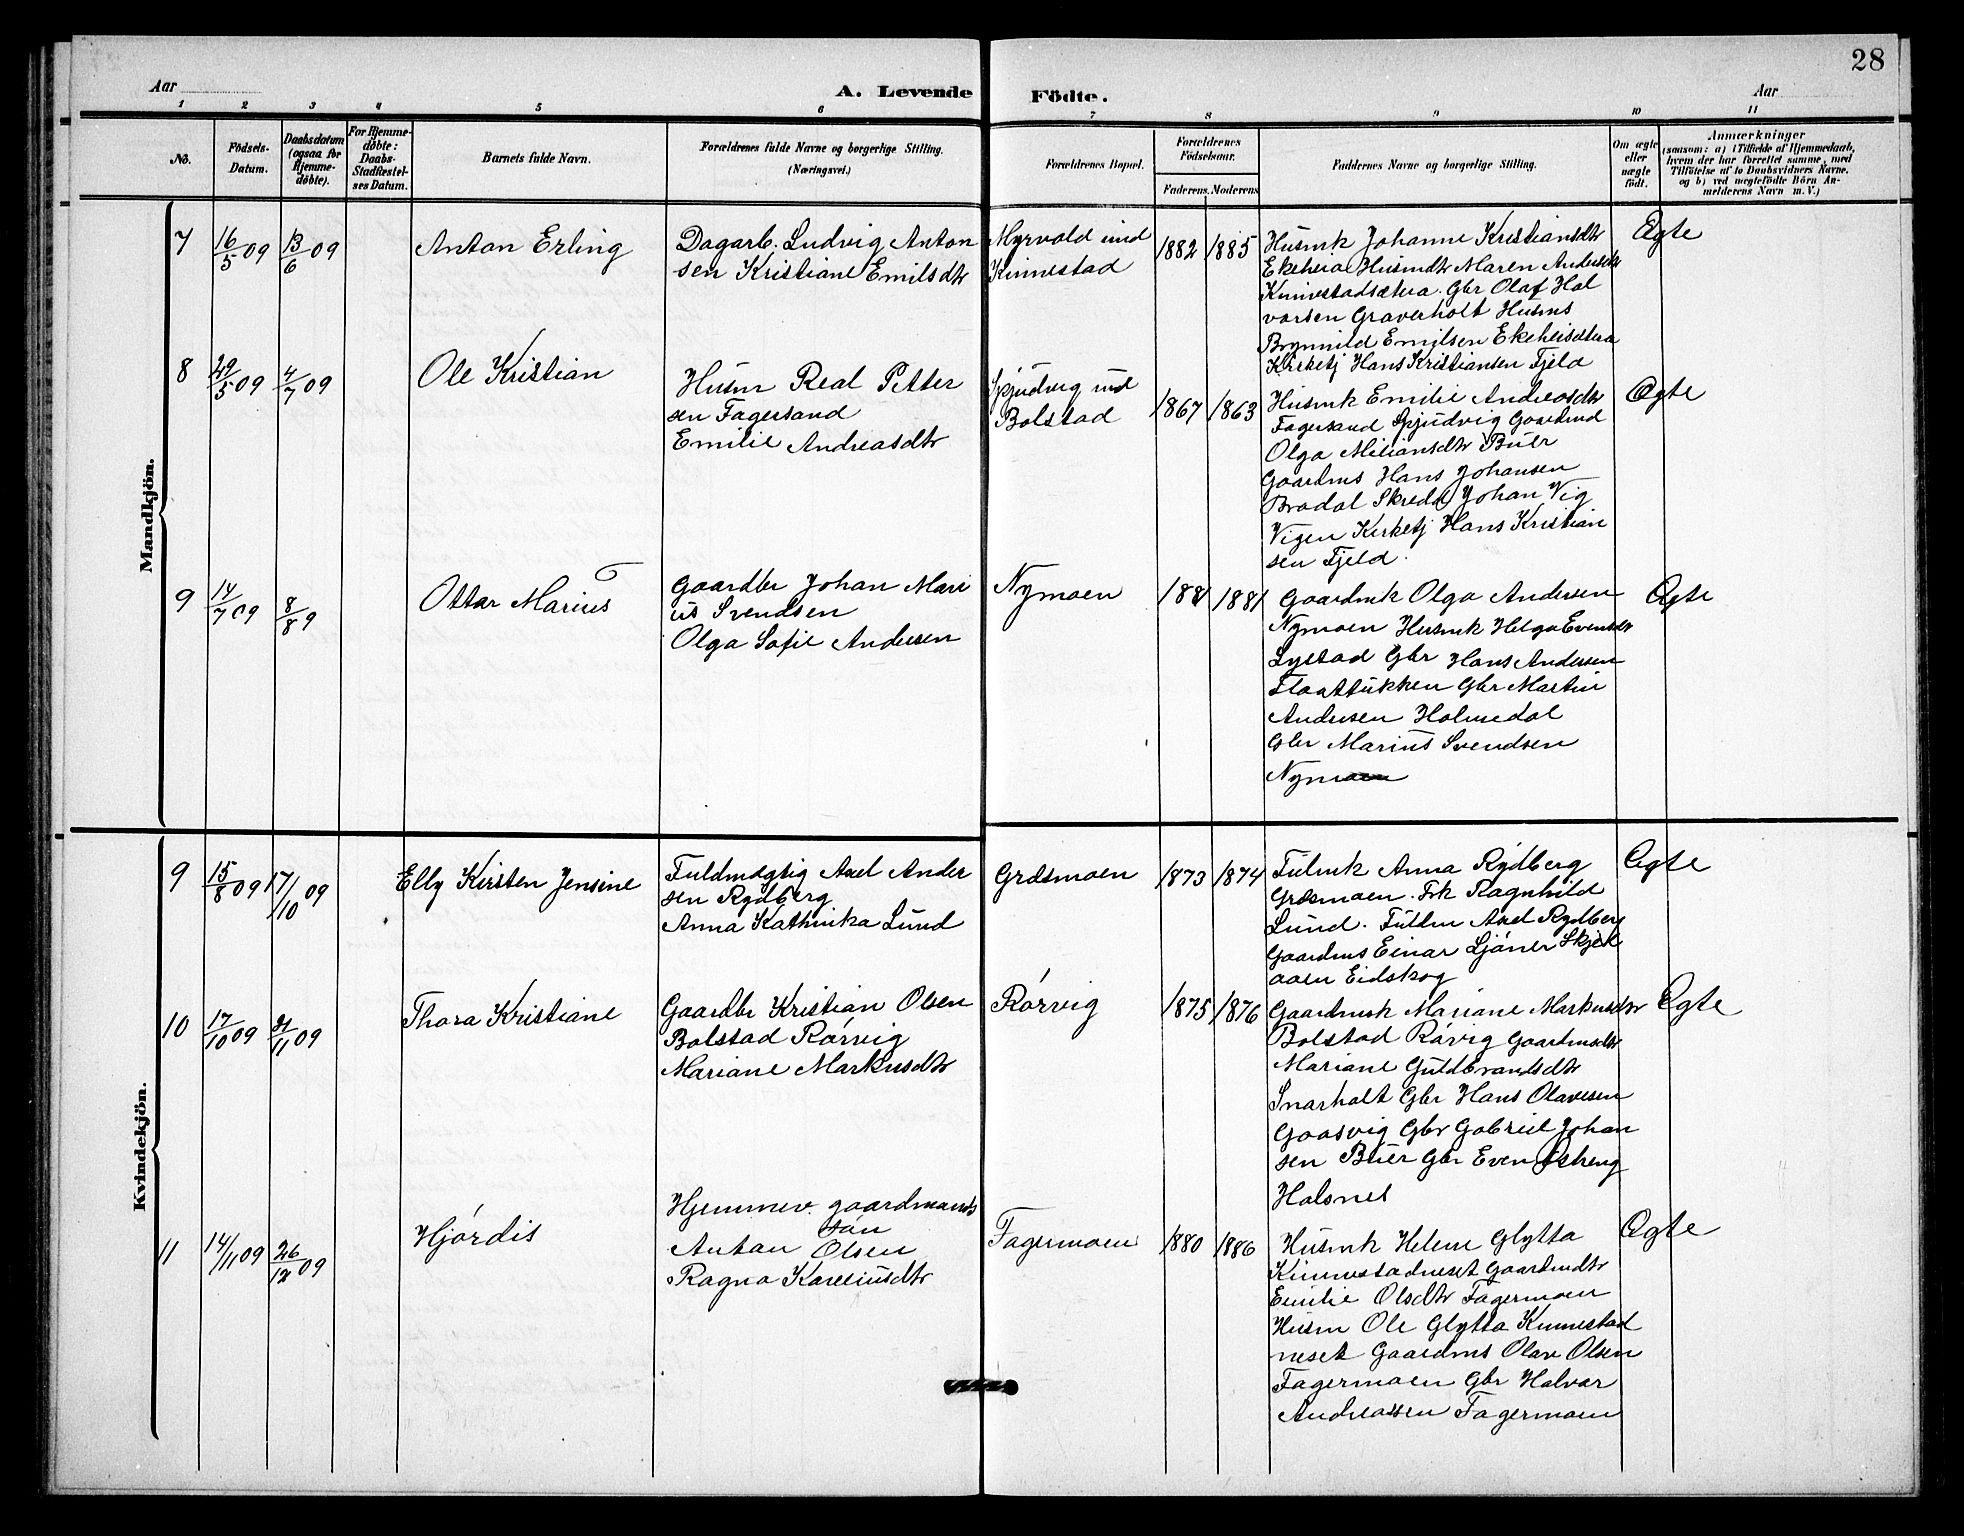 28
Aar
A. Levende Födte.
Aar
1 2 3 4 5 6 7 8 9 10 11
No.
Födsels-Datum.
Daabsdatum (ogsaa for Hjemme-döbte).
For Hjemme-döbte: Daabs-Stadfæstel-ses Datum.
Barnets fulde Navn.
Forældrenes fulde Navne og borgerlige Stilling.
(Næringsvei.)
Forældrenes Bopæl.
Forældrenes Födselsaar.
Faderens. Moderens.
Faddernes Navne og borgerlige Stilling.
Om ægte eller uægte født.
Anmærkninger
(saasom: a) i Tilfælde af Hjemmedaab,
hvem der har forrettet samme, med
Tilføielse af to Daabsvidners Navne.
og b) ved uægtefødte Börn An-
melderens Navn m. V.)
Mandkjön.
7 16/5 09 13/6 09 Anton Erling
Dagarb. Ludvig Anton
sen Kristiane Emilsdtr
Myrvold und
Kinnestad
1882 1885
Husmk Johanne Kristiansdtr
Ekeheia Husmdtr Maren Andersdtr
Kinnestadsætra. Gbr Olaf Hal
vorsen Graverholt Husms
Brynnild Emilsen Ekeheisætera
Kirketj Hans Kristiansen Fjeld
Ægte
8 29/5 09 4/7 09 Ole Kristian
Husm Real Petter
sen Fagersand
Emilie Andreasdtr
Spjudvig und
Bolstad
1867 1863
Husmk Emilie Andreasdtr
Fagersand Spjudvig Gaardmd
Olga Miliansdtr Buer
Gaardms Hans Johansen
Bradal Skredd Johan Vig
Vigen Kirketj Hans Kristian
sen Fjeld.
Ægte
9 14/7 09 8/8 9 Ottar Marius
Gaardbr Johan Mari
us Svendsen
Olga Sofie Andersen
Nymoen
1881 1881
Gaardmk Olga Andersen
Nymoen Husmk Helga Evensdtr
Lystad Gbr Hans Andersen
Flaattukken Gbr Martin
Andersen Holmedal
Gbr Marius Svendsen
Nymoen
Ægte
Kvindekjön.
9 15/8 09 17/10 09 Elly Kirsten Jensine
Fuldmægtig Axel Ander
sen Rydberg
Anna Kathinka Lund
Græsmoen
1873 1874
Fulmk Anna Rydberg
Græsmoen. Frk Ragnhild
Lund. Fuldm Axel Rydberg
Gaardms Einar Ljøner Skjel
aaen Eidskog
Ægte
10 17/10 09 21/11 09 Thora Kristiane
Gaardbr Kristian Olsen
Bolstad Rørvig
Mariane Markusdtr
Rørvig
1875 1876
Gaardmsk Mariane Markusdtr
Bolstad Rørvig Gaardmsdtr
Mariane Guldbrandsdtr
Snarholt Gbr Hans Olavesen
Gaasvig Gbr Gabriel Johan
sen Buer Gbr Even Østeng
Halsnes
Ægte
11 14/11 09 26/12 09 Hjørdis
Hjemmev. gaardmands
søn
Anton Olsen
Ragna Kareliusdtr
Fagermoen
1880 1886
Husmk Helene Glytta
Kinnestadneset Gaardmdtr
Emilie Olsdtr Fagermoen
Husm Ole Glytta Kinnestad
neset Gaardms Olav Olsen
Fagermoen Gbr Halvar
Andreassen Fagermoen
Ægte